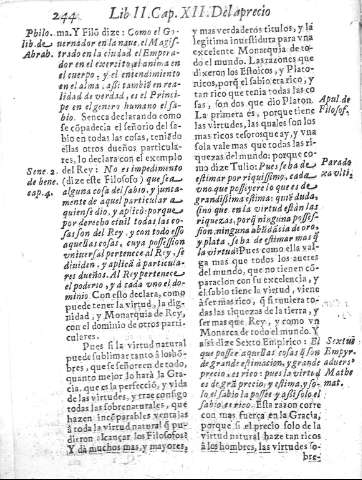 244 Lib II. Cap. XII. Del aprecio
Philo. ma. Y Filõ dize: Como el Go-
lib. de uernador en la naue, el Magis-
Abrah. trado en la ciudad, el Empera-
dor en el exercito, el anima en
el cuerpo, y el entendimiento
en el alma, assi tambiẽ en rea-
lidad de verdad, es el Princi-
pe en el genero humano el sa-
bio. Seneca declarando como
se cõpadecia el señorio del sa-
bio en todas las cosas, teniẽdo
ellas otros dueños particula-
res, lo declara con el exemplo
Sene. 2. del Rey: No es impedimento
de bene. (dize este Filosofo) que sea
cap. 4. alguna cosa del sabio, y junta-
mente de aquel particular a
quien se dio, y aplicò: porque
por derecho ciuil todas las co-
sas son del Rey, y con todo esso
aquellas cosas, cuya possession
vniuersal pertenece al Rey, se
diuiden, y aplicã a particula-
res dueños. Al Rey pertenece
el poderio, y â cada vno el do-
minio. Con esto declara, como
puede tener la virtud, la dig-
nidad, y Monarquia de Rey,
con el dominio de otros parti-
culares.
Pues si la virtud natural
puede sublimar tanto à los hõ-
bres, que se señoreen de todo,
quanto mejor lo harà la Gra-
cia, que es la perfeccion, y vida
de las virtudes, y trae consigo
todas las sobrenaturales, que
hazen incomparables ventajas
â toda la virtud natural q̃ pu-
dieron alcançar los Filosofos?
Y dà muchos mas, y mayores,
y mas verdaderos titulos, y la
legitima inuestidura para vna
excelente Monarquia de to-
do el mundo. Las razones que
dixeron los Estoicos, y Plato-
nicos, porq̃ el sabio era rico, y
tan rico que tenia todas las co-
sas, son dos que dio Platon. Apul. de
La primera es, porque tiene Filosof.
las virtudes, las quales son los
mas ricos tesoros que ay, y vna
sola vale mas que todas las ri-
quezas del mundo: porque co-
mo dize Tulio: Pues se ha de Parado
estimar por riquissimo, cada xa vlti.
vno que posseyere lo que es de
grandissima estima: què duda,
sino que en la virtud estàn las
riquezas, porq̃ ninguna posses-
sion, ninguna abũdãcia de oro,
y plata, se ha de estimar mas q̃
la virtud? Pues como ella val-
ga mas que todos los aueres
del mundo, que no tienen cõ-
paracion con su excelencia, y
el sabio tiene la virtud, viene
à ser mas rico, q̃ si tuuiera to-
das las riquezas de la tierra, y
ser mas que Rey, y como vn
Monarca de todo el mundo. Y
assi dize Sexto Empirico: El Sextus
que possee aquellas cosas q̃ son Empyr.
de grande estimacion, y grande aduers.
precio, es rico: pues la virtud Mathe
es de grã precio, y estima, y so- mat.
lo el sabio la possee y assi solo el
sabio es rico. Esta razon corre
con mas fuerça en la Gracia,
porque si el precio solo de la
virtud natural haze tan ricos
à los hombres, las virtudes so-
bre-